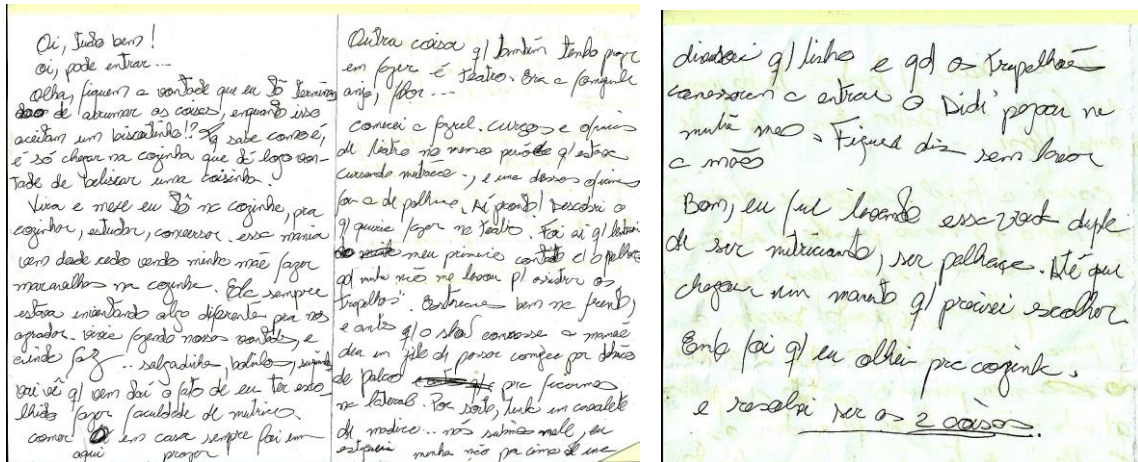 Oi, tudo bem!
oi, pode entrar...
Olha, fiquem a vontade que eu tô terminan
do de abrumar as coisas, enquanto isso
aceitam um biscoitinho!? Já sabe como é,
é só chegar na cozinha que dá logo von-
tade de beliscar uma coisinha.
Vira e mexe eu tô na cozinha, pra
cozinhar, estudar, conversar. essa mania
vem desde cedo vendo minha mãe fazer
maravilhas na cozinha. Ela sempre
estava inventando algo diferente pra nos
agradar. vivia fazendo nossas vontades, e
ainda faz ... salgadinho, bolinho,
vai vê q/ vem daí o fato de eu ter esco-
lhido fazer faculdade de nutrição.
comer aqui em casa sempre foi um
prazer
Outra coisa q/ também tenho prazer
em fazer é teatro. Era a
comecei a fazer cursos e oficinas
de teatro no mesmo período q/ estava
cursando nutrição, e uma dessas oficinas
foi a de palhaço. Aí pronto! Descobri o
q/ queria fazer no teatro. Foi aí q/ lembrei
meu primeiro contato c/ o palhaço
qd minha mãe me levou p/ assistir os
trapalhões. Estávamos bem na frente,
e antes q/ o show começasse a mamãe
deu um jeito de passar comigo por debaixo
do palco pra ficarmos
na lateral. Por sorte, tinha um cavalete
de madeira... nós subimos nele, eu
estiquei minha mão por cima de uma
divisória q/ tinha e qd os trapalhões
começaram a entrar o Didi pegou na
minha mão. Fiquei dias sem lavar
a mão
Bom, eu fui levando essa vida dupla
de ser nutricionista, ser palhaça. Até que
chegou um momento q/ precisei escolher
Então foi q/ eu olhei pra cozinha.
e resolvi ser as 2 coisas.